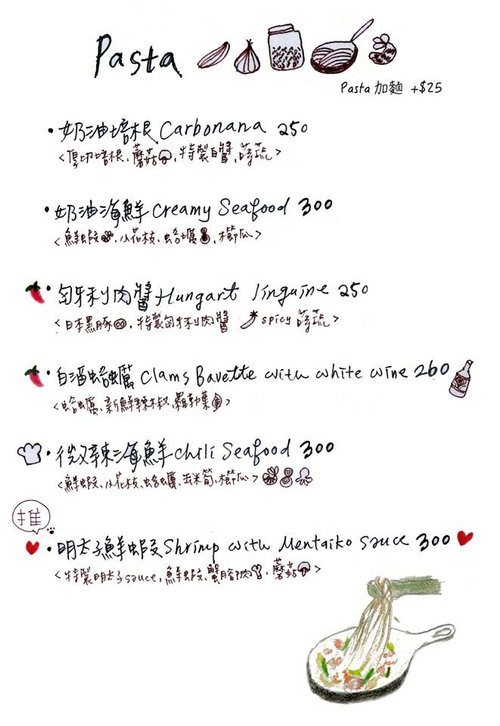 Pasta
Pasta 加麵 +$25
• 奶油培根 Carbonana 250
<厚切培根, 蘑菇, 特製白醬, 蒔蔬>
• 奶油海鮮 Creamy Seafood 300
<鮮蝦, 小花枝, 蛤蠣, 櫛瓜>
• 匈牙利肉醬 Hungart linguine 250
<日本黑豚, 特製匈牙利肉醬 spicy 蒔蔬>
• 白酒蛤蠣 Clams Bavette with white wine 260
<蛤蠣, 新鮮辣椒, 羅勒葉>
• 微辣海鮮 chili Seafood 300
<鮮蝦, 小花枝, 蛤蠣, 玉米筍, 櫛瓜>
推
• 明太子鮮蝦 Shrimp with Mentaiko sauce 300
<特製明太子sauce, 鮮蝦, 蟹腳肉, 蘑菇>